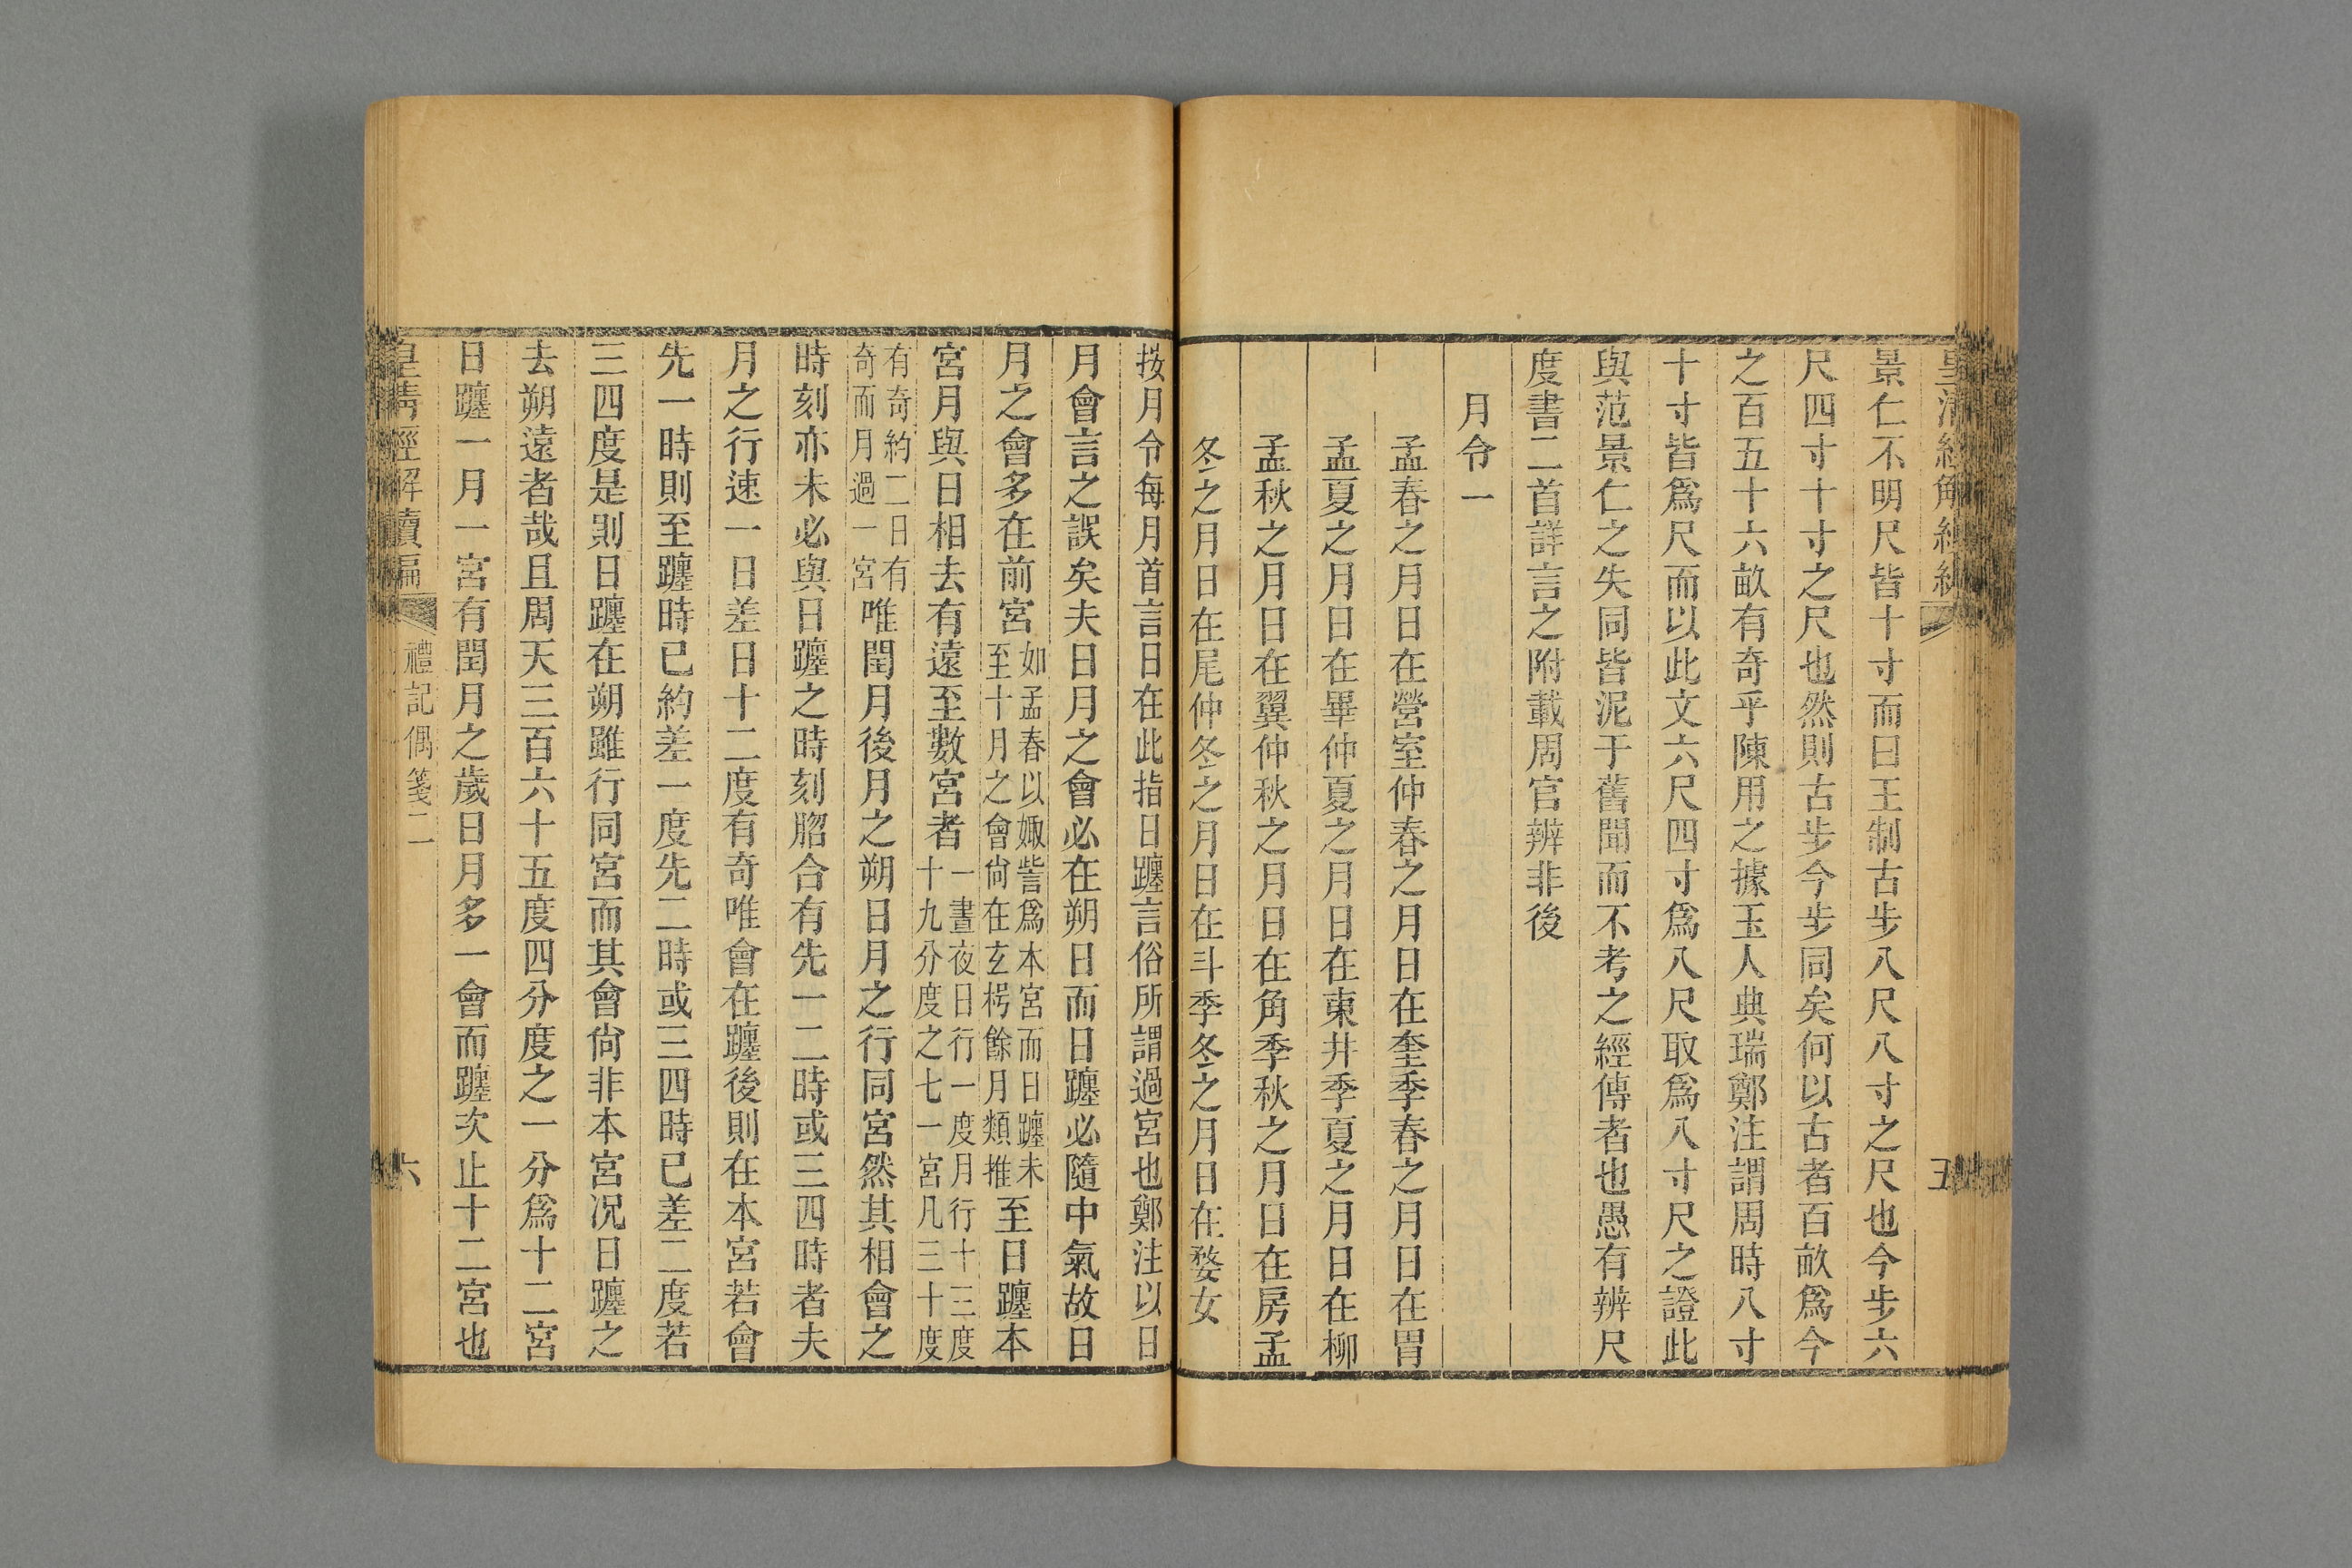 景仁不明尺皆十寸而曰王制古步八尺八寸之尺也今步六
尺四寸十寸之尺也然則古步今步同矣何以古者百畝爲今
之百五十六畝有奇乎陳用之據玉人典瑞鄭注謂周時八寸
十寸皆爲尺而以此文六尺四寸爲八尺取爲八寸尺之證此
與范景仁之失同皆泥于舊聞而不考之經傳者也愚有辨尺
度書二首詳言之附載周官辨非後
月令一
孟春之月日在營室仲春之月日在奎季春之月日在胃
孟夏之月日在畢仲夏之月日在東井季夏之月日在柳
孟秋之月日在翼仲秋之月日在角季秋之月日在房孟
冬之月日在尾仲冬之月日在斗季冬之月日在婺女
按月令每月首言日在此指日躔言俗所謂過宮也鄭注以日
月會言之誤矣夫日月之會必在朔日而日躔必隨中氣故日
月之會多在前宮如孟春以娵訾爲本宮而日躔未至十月之會尙在玄枵餘月類推至日躔本
宮月與日相去有遠至數宮者一晝夜日行一度月行十三度十九分度之七一宮凡三十度
有奇約二日有奇而月過一宮唯閏月後月之朔日月之行同宮然其相會之
時刻亦未必與日躔之時刻脗合有先一二時或三四時者夫
月之行速一日差日十二度有奇唯會在躔後則在本宮若會
先一時則至躔時已約差一度先二時或三四時已差二度若
三四度是則日躔在朔雖行同宮而其會尙非本宮况日躔之
去朔遠者哉且周天三百六十五度四分度之一分爲十二宮
日躔一月一宮有閏月之歲日月多一會而躔次止十二宮也
皇淸經解續編
禮記偶箋二
六